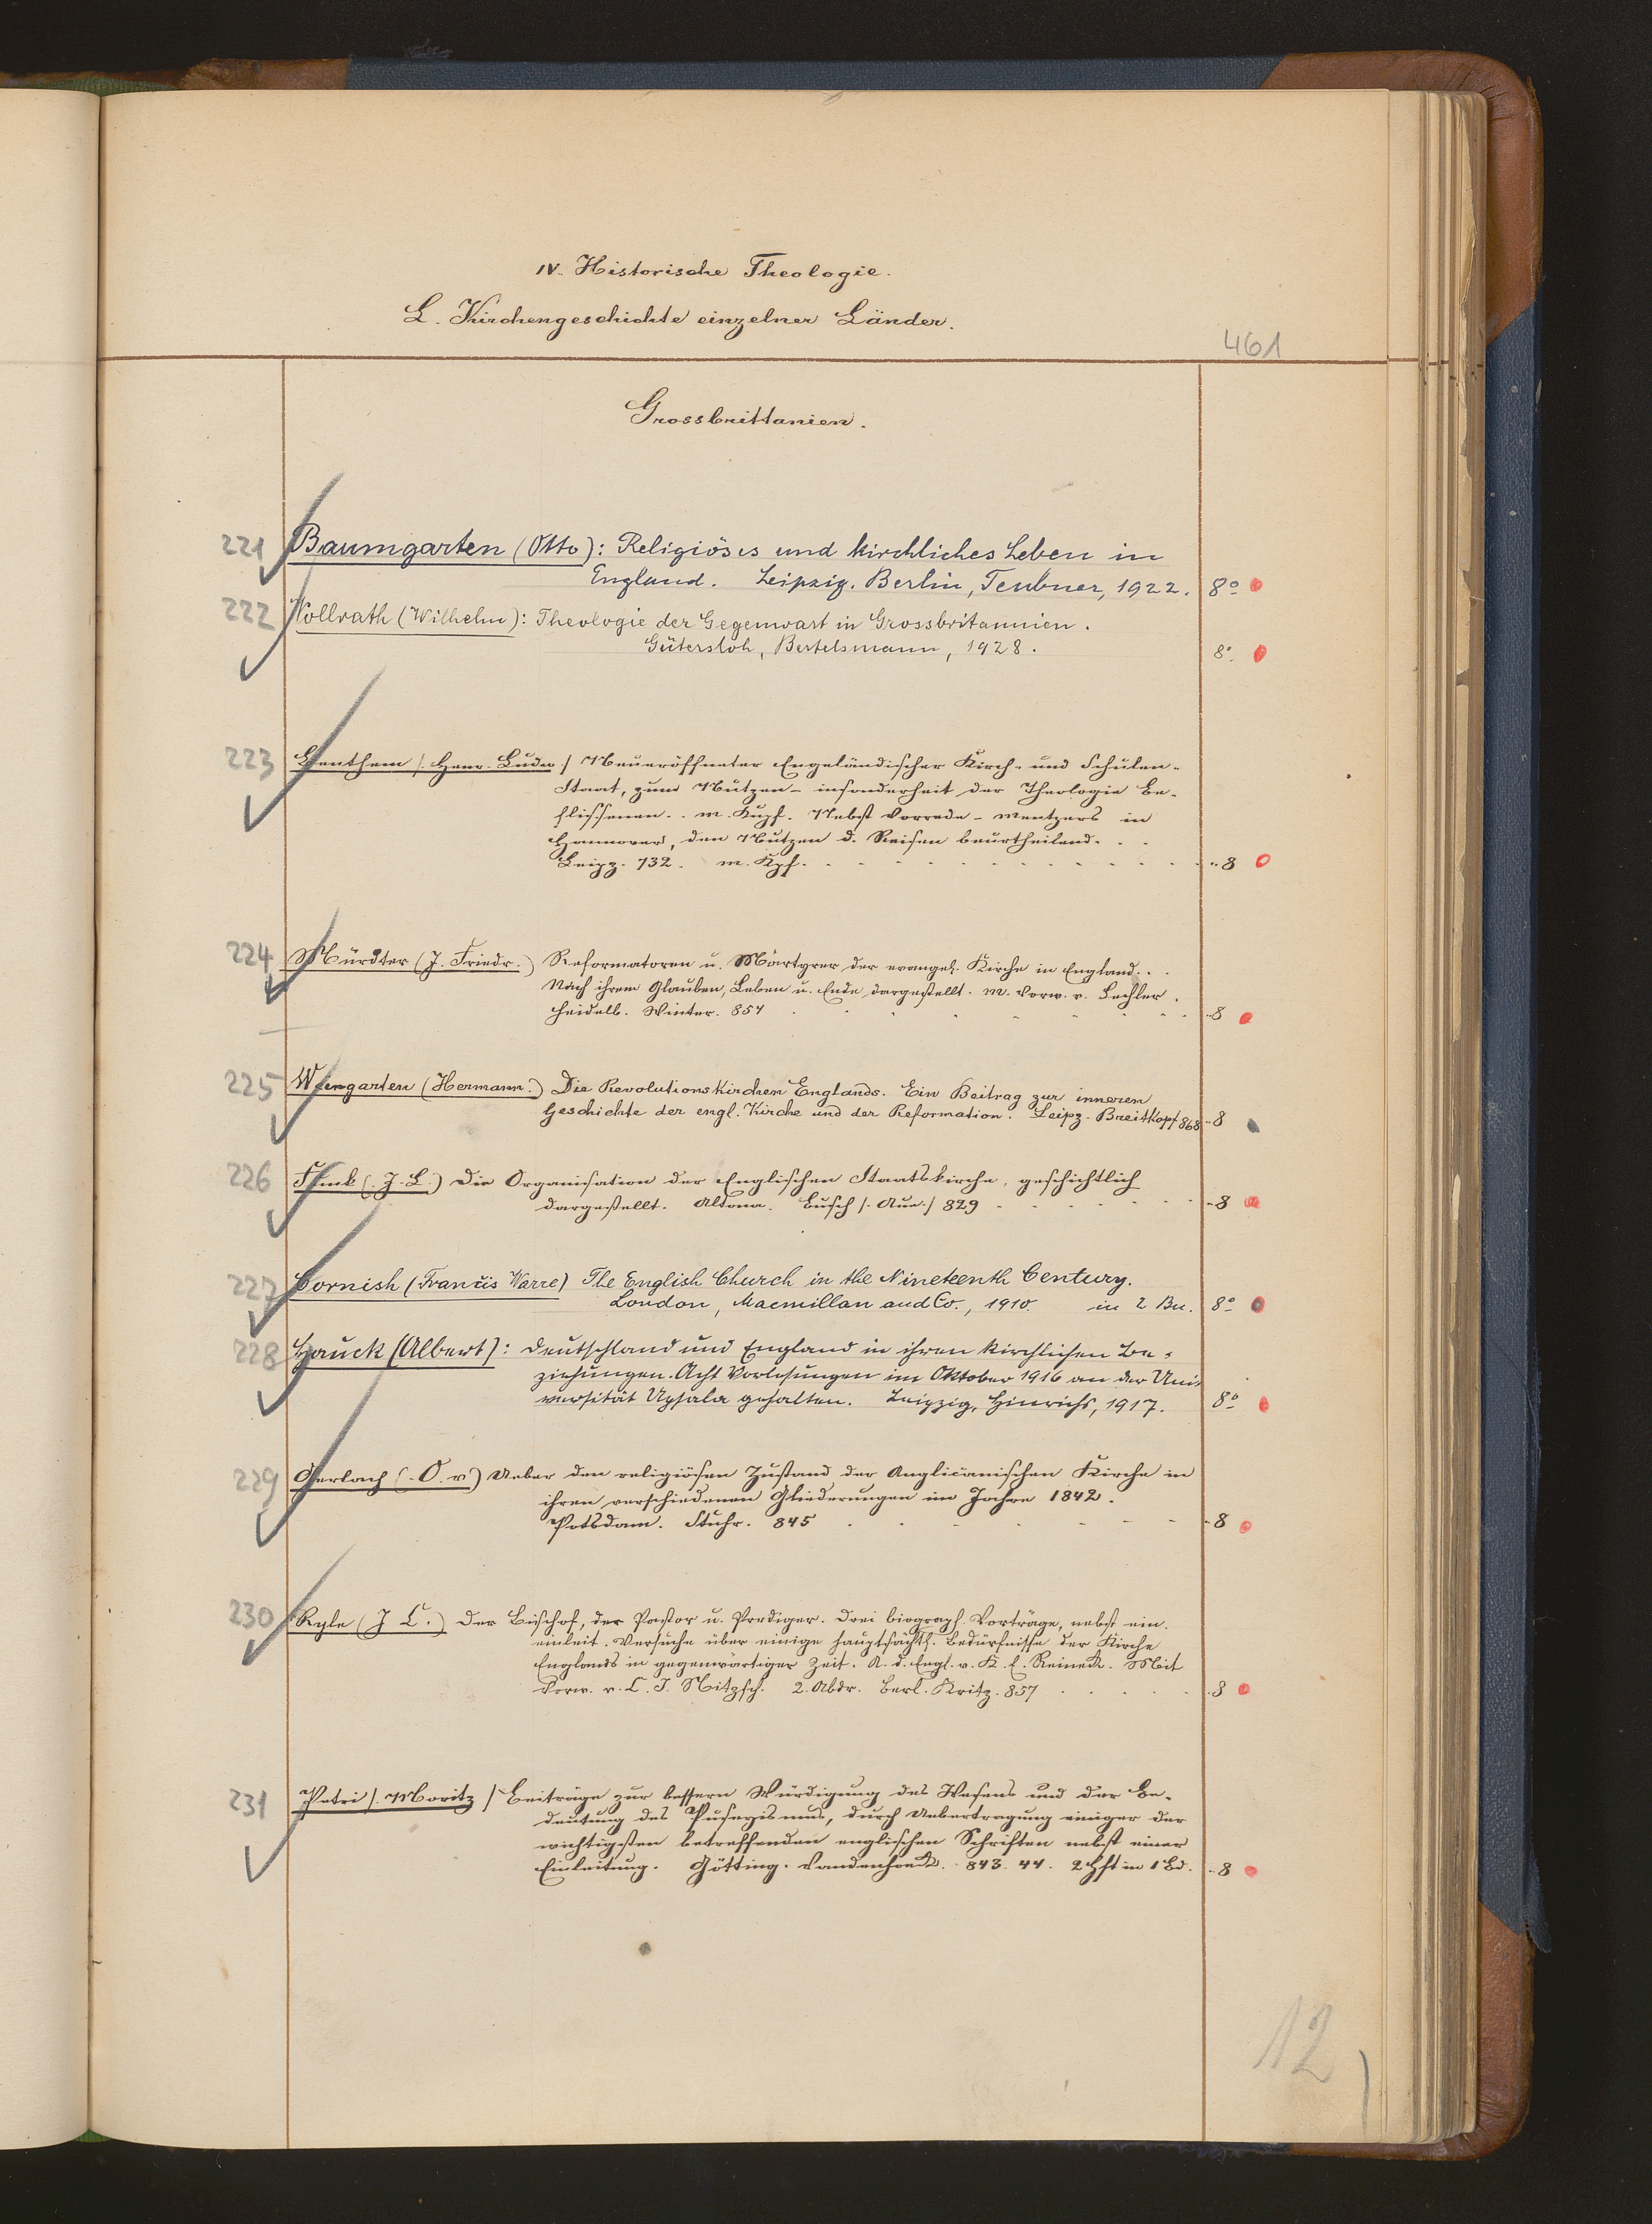 IV. Historische Theologie.
L. Kirchengeschichte einzelner Länder.
461
Grossbrittanien.
221 Baumgarten (Otto): Religiöses und kirchliches Leben in
England. Leipzig. Berlin, Teubner, 1922. 8º
222 Vollrath (Wilhelm): Theologie der Gegenwart in Grossbritannien.
Gütersloh, Bertelsmann, 1928. 8º
223 Benthem /. Henr. Ludw / Neueröffneter Engeländischer Kirch- und Schulen-
Staat, zum Nutzen - insonderheit der Theologie Be-
flissenen.. m. Kupf. Nebst Vorrede - Mentzers in
Hannover, den Nutzen d. Reisen beurtheilend. . .
Leipz. 732. m. Kpf. 8
224 Mürdter (J. Friedr.) Reformatoren u. Märtyrer der evangel. Kirche in England. . .
Nach ihrem Glauben, Leben u. Ende dargestellt. m. Vorw. v. Lechler.
Heidelb. Winter. 857 8
225 Weingarten (Hermann.) Die Revolutionskirchen Englands. Ein Beitrag zur inneren
Geschichte der engl. Kirche und der Reformation. Leipz. Breitkopf 868 8
226 Funk (. J. L.) Die Organisation der Englischen Staatskirche, geschichtlich
dargestellt. Altona. Busch /. Aue./ 829 8
227 Cornish (Francis Warre) The English Church in the Nineteenth Century.
London, Macmillan and Co., 1910. in 2 Bn. 8º
228 Hauck (Albert): Deutschland und England in ihren kirchlichen Be-
ziehungen. Acht Vorlesungen im Oktober 1916 an der Uni-
versität Upsala gehalten. Leipzig, Hinrichs, 1917. 8º
229 Gerlach (. O. v) Ueber den religiösen Zustand der Anglicanischen Kirche in
ihren verschiedenen Gliederungen im Jahre 1842.
Potsdam. Stuhr. 845 8
230 Ryle (J C.) Der Bischof, der Pastor u. Prediger. Drei biograph. Vorträge, nebst ein.
einleit. Versuche über einige hauptsächl. Bedürfnisse der Kirche
Englands in gegenwärtiger Zeit. A. d. Engl. v. K. E. Reineck. Mit
Vorw. v. C. J. Nitzsch. 2. Abdr. Berl. Kritz. 857 8
231 Petri /. Moritz / Beiträge zur bessern Würdigung des Wesens und der Be-
deutung des Puseyismus, durch Uebertragung einiger der
wichtigsten betreffenden englischen Schriften nebst einer
Einleitung. Götting. Vandenhoeck. 843. 44. 2 Hft in 1 Bd. 8
12